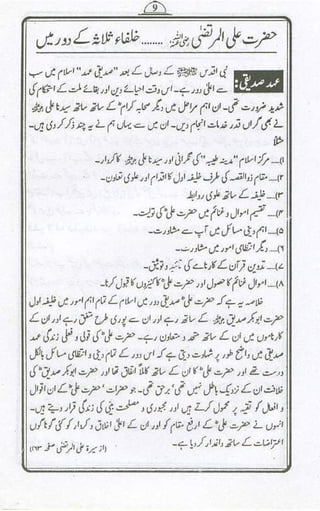 9
حضرت علی المرتضیٰ ؓ ........ خلفاء ثلاثہ کے دور میں
عہد صدیقی:
نبی اقدس ﷺ کے وصال کے بعد "صدیقی عہد" اسلام میں سب
سے اعلیٰ دور ہے۔ اس وقت احیائے دین اور بقائے ملت کے استحکام کی
شدید ضرورت تھی۔ ان اہم مراحل میں دیگر صحابہ کرامؓ کے ساتھ ساتھ سیدنا علی ؓ
نے بھی گراں قدر خدمات انجام دیں۔ ان میں سے یہاں ہم نے یہ چند ذکر کردی ہیں۔
مثلاً
۱)... مرکز اسلام "مدینہ طیبہ" کی نگرانی اور سیدنا علی ؓ کا کردار۔
۲)... مقام ذوالقصہ کی طرف خلیفہ اول کا اقدام اور علوی تعاون۔
۳)... خلیفہ کے ساتھ علوی روابط
۴)... تقسیم اموال و غنائم میں حضرت علیؓ کی تولیت۔
۵)... اہم دینی مسائل میں آپ سے مشاورت۔
۶)... دیگر انتظامی امور میں مشاورت۔
۷)... تدوین قرآن کے کارنامے کی تائید و توثیق۔
۸)... اموال غنائم کا حصول اور حضرت علیؓ کا کنیزوں کا قبول کرنا۔
خلاصہ یہ ہے کہ حضرت علیؓ صدیقی دور میں اسلام کے تمام اہم امور میں خلیفہ اول
حضرت ابوبکر صدیق ؓ کے ساتھ رہے اور ان سے پوری طرح متعلق رہے اور ان کے
کارناموں میں ان کے ساتھ متحد و متعاون رہے۔ حضرت علیؓ کی قولی و فعلی زندگی عہد
صدیقی میں واضح طور پر شہادت دیتی ہے کہ اس دور کے تمام دینی و انتظامی مسائل بالکل
درست تھے اور حضرت علیؓ کا ان کے ساتھ کلاً اتفاق تھا اور حضرت ابوبکر صدیقؓ کی
خلافت ان کے نزدیک باطل نہیں تھی' برحق تھی۔ جو حضرات' حضرت علیؓ کے ان اقوال
و افعال کو تقیہ پر محمول کرتے ہیں اور مجبوری و مصلحت بینی کی زندگی قرار دیتے ہیں۔
انہوں نے حضرت علیؓ کے ارفع مقام کو اور ان کے اعلیٰ اخلاق و کردار کو کئی گوناگوں
اعتراضات کے ساتھ داغدار کردیا ہے۔ (از سیرۃ علی المرتضیٰ صفحہ ۱۶۳)